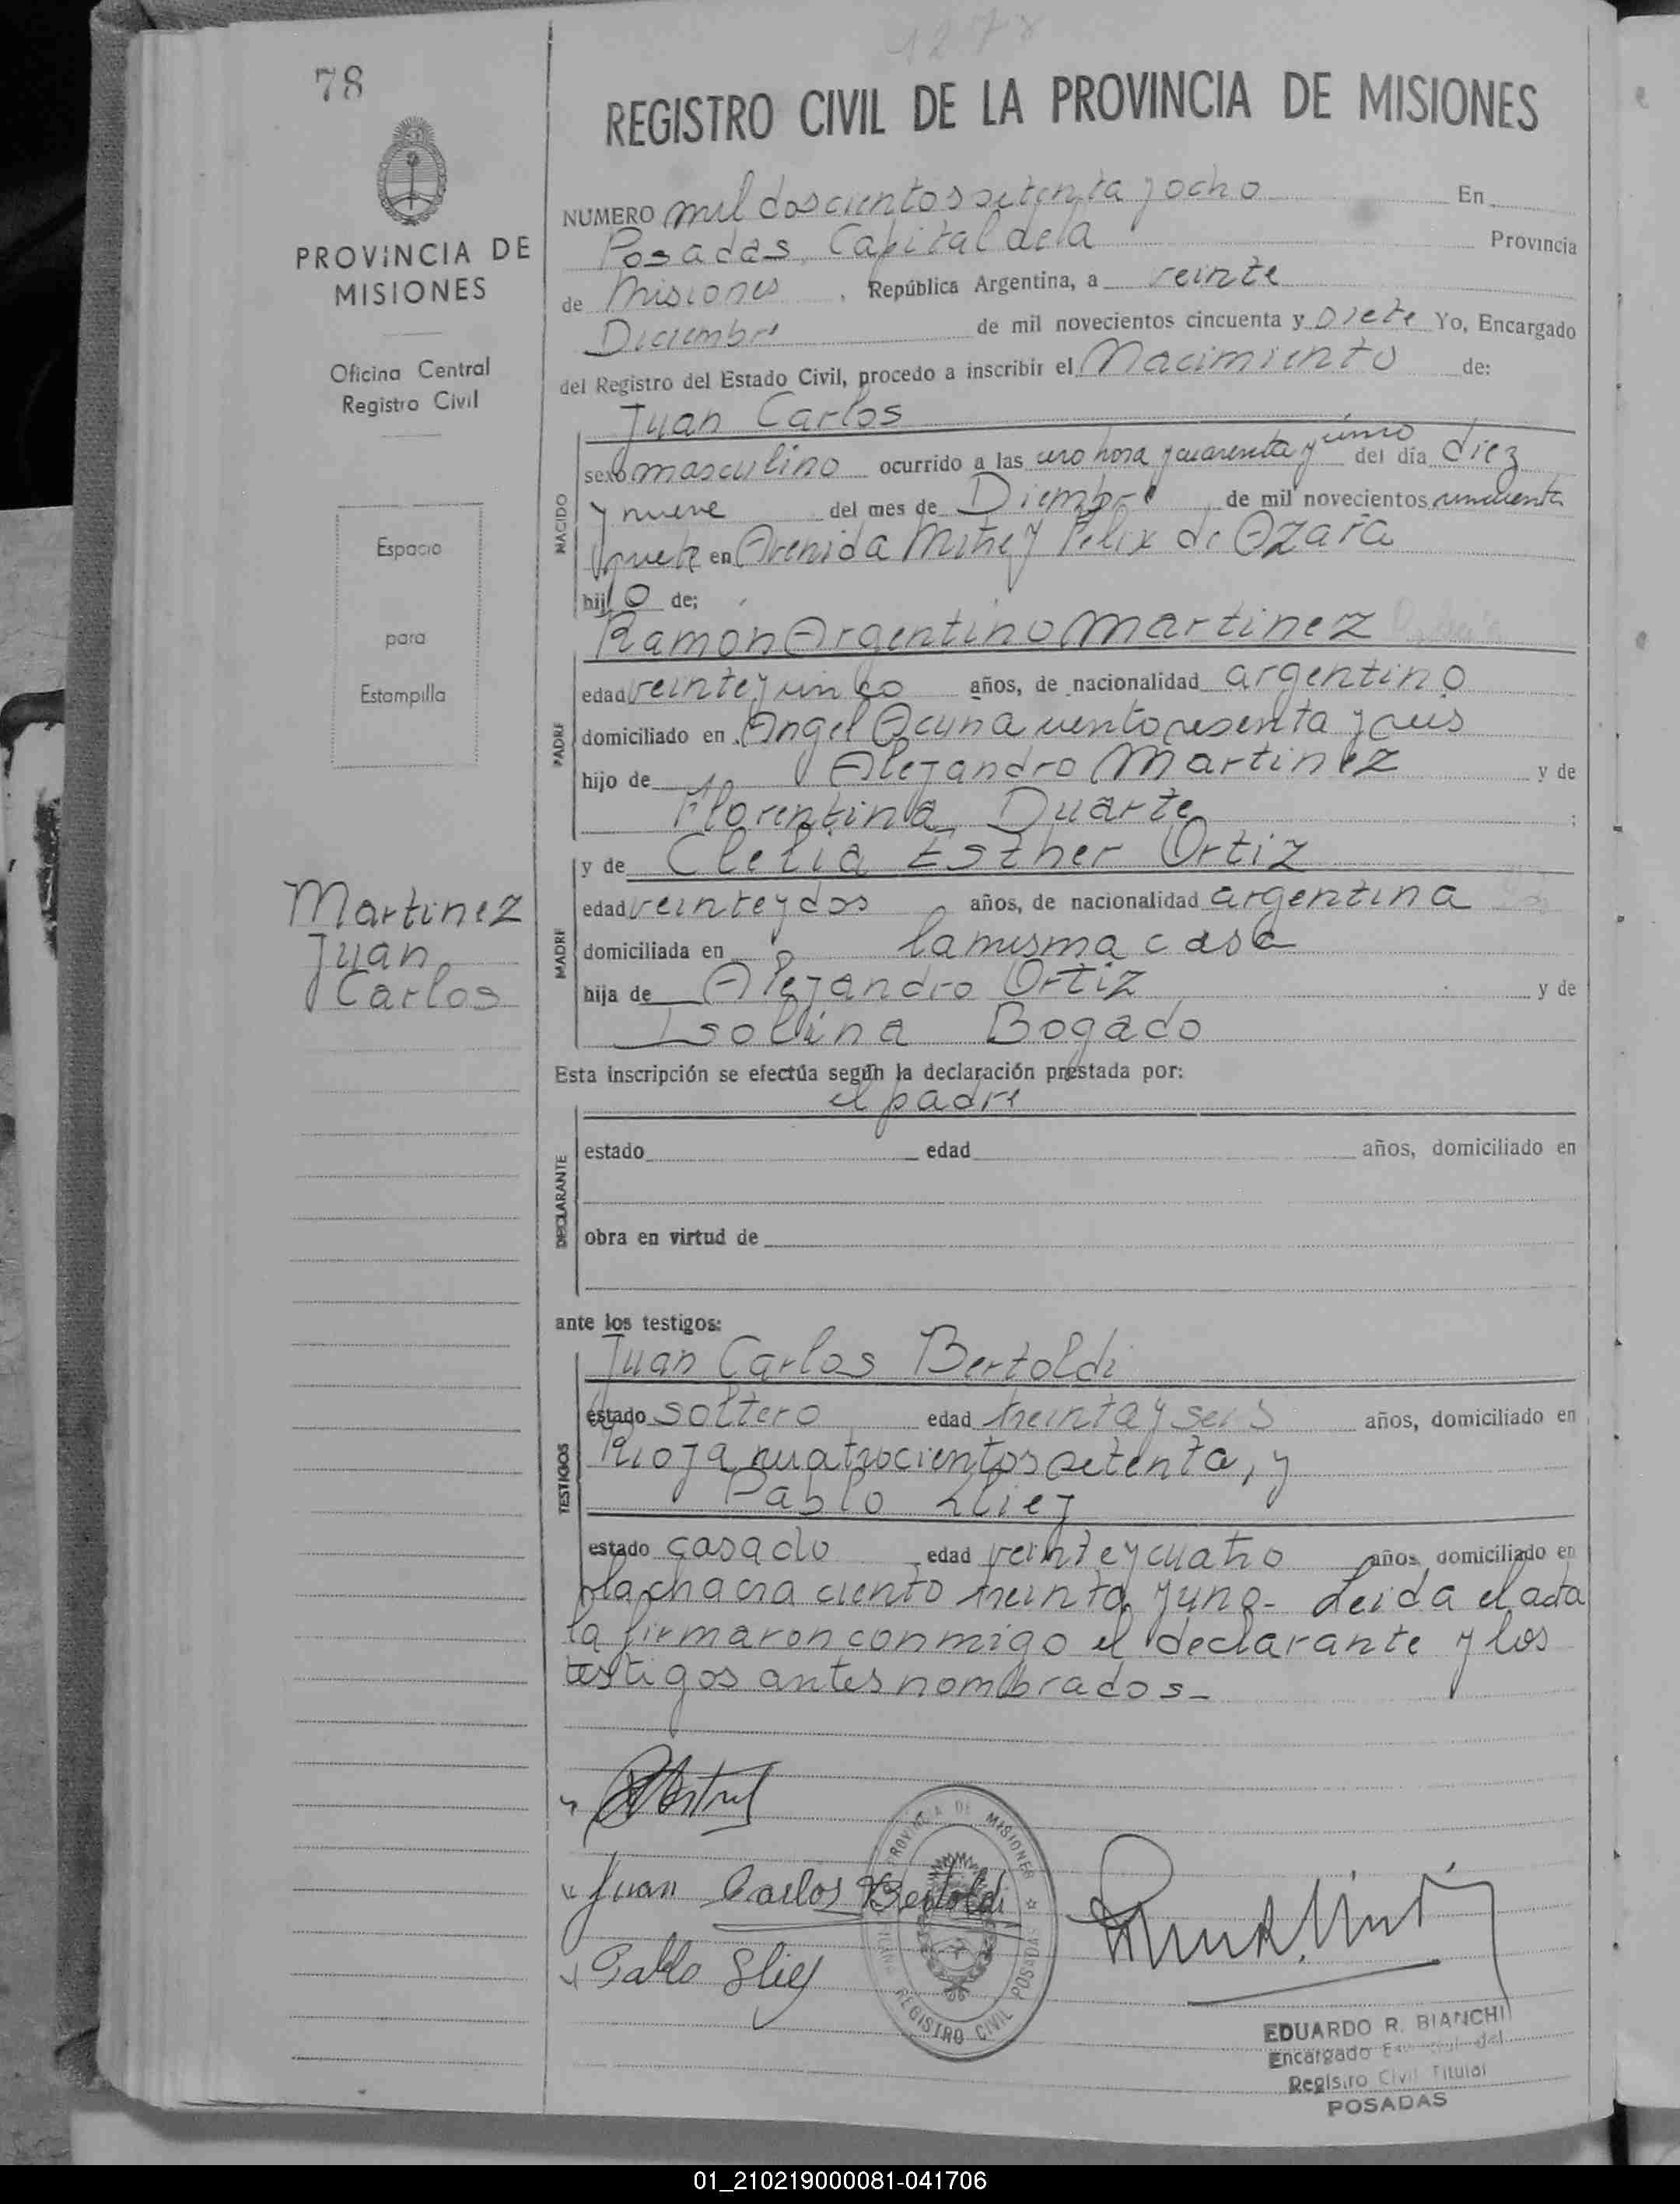 1278
78
REGISTRO CIVIL DE LA PROVINCIA DE MISIONES
PROVINCIA DE
MISIONES
Oficina Central
Registro Civil
Espacio
para
Estampilla
Martinez
Juan
Carlos
NUMERO mil doscientos setenta y ocho En
Posadas, Capital de la Provincia
de Misiones, República Argentina, a veinte
Diciembre de mil novecientos cincuenta y siete Yo, Encargado
del Registro del Estado Civil, procedo a inscribir el Nacimiento de:
Juan Carlos
NACIDO
sexo masculino ocurrido a las cero hora y cuarenta y cinco del día diez
y nueve del mes de Diembre de mil novecientos cincuenta
y siete en Avenida Mitre y Felix de Azara
hijo de;
Ramon Argentino Martinez
PADRE
edad veinte y cinco años, de nacionalidad argentino
domiciliado en Angel Acuña ciento sesenta y seis
hijo de Alejandro Martinez y de
Florentina Duarte ;
y de Clelia Esther Ortiz
MADRE
edad veinte y dos años, de nacionalidad argentina
domiciliada en la misma casa
hija de Alejandro Ortiz y de
Isolina Bogado
Esta inscripción se efectúa según la declaración prestada por:
el padre
DECLARANTE
estado edad años, domiciliado en
obra en virtud de
ante los testigos:
Juan Carlos Bertoldi
TESTIGOS
estado soltero edad treinta y seis años, domiciliado en
Rioja cuatrocientos setenta, y
Pablo
estado casado edad veinte y cuatro años, domiciliado en
la chacra ciento treinta y uno- Leida el acta
la firmaron conmigo el declarante y los
testigos antes nombrados-
Juan Carlos Bertoldi
Pablo
PROVINCIA DE MISIONES
REGISTRO CIVIL POSADAS
EDUARDO R. BIANCHI
Encargado del
Registro Civil Titular
POSADAS
01_210219000081-041706